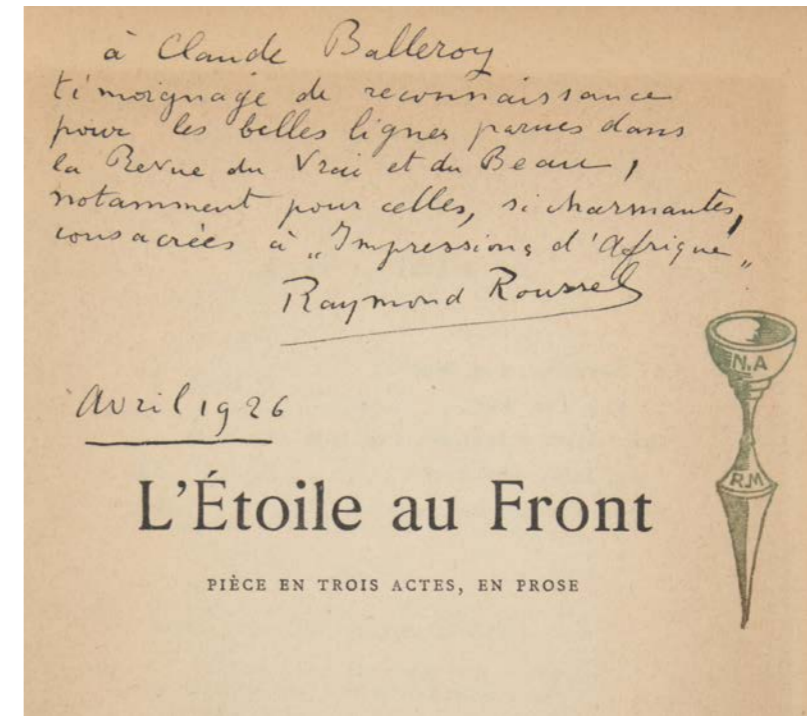 à Claude Balleroy
témoignage de reconnaissance
pour les belles lignes parues dans
la Revue du Vrai et du Beau,
notamment pour celles, si charmantes,
consacrées à „Impressions d'Afrique„
Raymond Roussel
Avril 1926
N.A
R.M
L'Étoile au Front
PIÈCE EN TROIS ACTES, EN PROSE